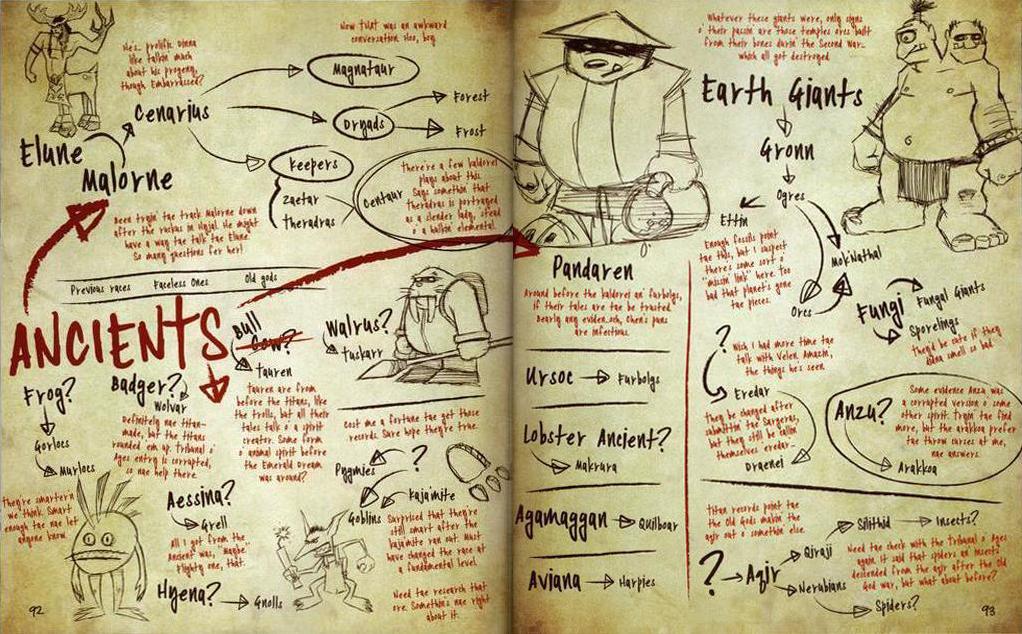 He's prolific. Dinna
like talkin' much
about his progeny,
though. Embarrassed?
Now that was an awkward
conversation. Noo, boy.
Magnataur
Cenarius
Dryads
Forest
Frost
Elune
Malorne
Keepers
Zaetar
Theradras
Centaur
There're a few kaldorei
plays about this.
Says somethin' that
Theradras is portrayed
as a slender lady, 'stead
o' a hulkin' elemental.
Been tryin' tae track Malorne down
after the ruckus in Hyjal. He might
have a way tae talk tae Elune.
So many questions fer her!
Previous races
Faceless Ones
Old gods
ANCIENTS
Bull
Cow?
Tauren
Walrus?
Tuskarr
Frog?
Gorlocs
Murlocs
Badger?
Wolvar
Definitely nae titan-
made, but the titans
rounded 'em up. Tribunal o'
Ages entry is corrupted,
so nae help there.
Tauren are from
before the titans, like
the trolls, but all their
tales talk o' a spirit
creator. Some form
o' animal spirit before
the Emerald Dream
was around?
Cost me a fortune tae get those
records. Sure hope they're true.
?
Pygmies
Kajamite
Goblins
They're smarter'n
we think. Smart
enough tae nae let
anyone know.
Aessina?
Grell
All I got from the
Ancient was, "Maybe."
Flighty one, that.
Hyena?
Gnolls
Surprised that they're
still smart after the
kajamite ran out. Must
have changed the race at
a fundamental level.
Need tae research that
ore. Somethin's nae right
about it.
92
Whatever these giants were, only signs
o' their passin' are those temples orcs built
from their bones durin' the Second War...
which all got destroyed
Earth Giants
Gronn
Ogres
Ettin
Mok'Nathal
Orcs
Enough fossils point
tae this, but I suspect
there's some sort o'
"missin' link" here. Too
bad that planet's gone
tae pieces.
Pandaren
Around before the kaldorei an' furbolgs,
if their tales are tae be trusted.
Nearly any evidence...och, Chen's puns
are infectious.
Fungi
Fungal Giants
Sporelings
They'd be cute if they
didna smell so bad
?
Wish I had more time tae
talk with Velen. Amazin',
the things he's seen.
Eredar
They be changed after
submittin' tae Sargeras,
but they still be callin'
themselves eredar...
Draenei
Anzu?
Some evidence Anzu was
a corrupted version o' some
other spirit. Tryin' tae find
more, but the arakkoa prefer
tae throw curses at me,
nae answers.
Arakkoa
Ursoc
Furbolgs
Lobster Ancient?
Makrura
Agamaggan
Quilboar
Aviana
Harpies
Titan records point tae
the Old Gods makin' the
aqir out o' somethin' else.
?
Aqir
Qiraji
Silithid
Insects?
Nerubians
Spiders?
Need tae check with the Tribunal o' Ages
again. It said that spiders an' insects
descended from the aqir after the Old
God war, but what about before?
93